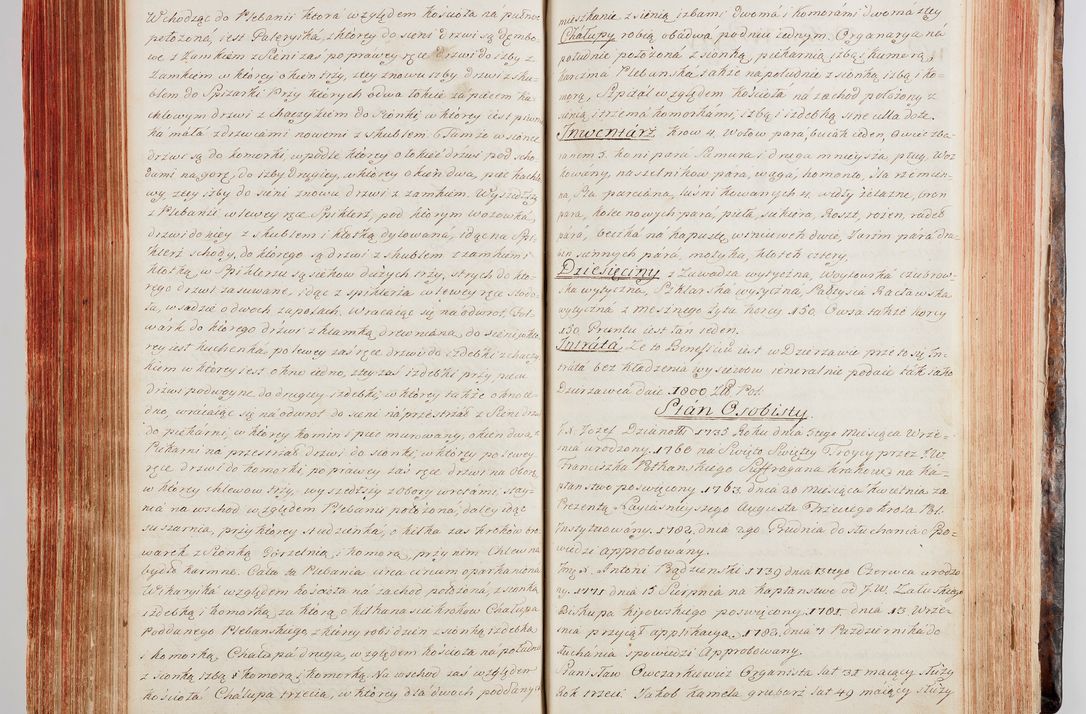 Wchodząc do Plebanii ktora względem kościoła na pułnoc
położona, iest Paterynka, z ktorey do sieni drzwi są dembo-
we z Zamkiem z Sieni zaś po prawey ręce drzwi do Izby z
Zamkiem w ktorey okien trzy, z tey znowu Izby drzwi z sku-
blem do Spizarki Przy ktorych o dwa łokcie za piecem ka-
chlowym drzwi z haczykiem do Sionki, w ktorey iest piwni-
ka mała z drzwiami nowemi z skublem. Tamże w sionce
drzwi są do komorki, wpodle ktorey o łokieć drzwi pod scho-
dami na gorę, do Izby drugiey, w ktorey okien dwa, piec kachlo-
wy, z tey Izby do sieni znowu drzwi z zamkiem. Wyszedłszy
z Plebanii w lewey ręce Spiklerz, pod ktorym wozownia,
drzwi do niey z skublem i kłotką dylowaná, idąc na Spi-
klerz schody, do ktorego są drzwi z skublem z zamkiem i
kłotką, w Spiklerzu są siekow dużych trzy, strych do kto-
rego drzwi zasuwane, idąc z spiklerza w lewey ręce stodo-
ła, w sadzie o dwoch zapolach. Wracaiąc się na odwrot, Fol-
wark do ktorego drzwi z klamką drewniana, do sieni w kto-
rey iest kuchenka, po lewey zaś ręce drzwi do izdebki z haczy-
kiem w ktorey iest okno iedno, z tey zaś izdebki przy piecu
drzwi podwoyne do drugiey izdebki, w ktorey także okno ie-
dno, wracaiąc się na odwrot do sieni ná przestrzał z Sieni drzwi
do piekarni, w ktorey komin i piec murowany, okien dwa z
Piekarni na przestrzał drzwi do sionki, w ktorey po lewey
ręce drzwi do komorki po prawey zaś ręce drzwi na oborę
w ktorey chlewow trzy, wyszedszy z obory wrotami, stay-
nia na wschod względem Plebanii położona, daley idąc
suszarnia, przy ktorey studzienka, o kilka zas krokow bro-
warek z Sionką Gorzelnią i komorą, przy nim Chlew na
bydło karmne. Cała ta Plebania circa circum oparkaniona
Wikaryika względem kościoła na zachod położona, z sionką
izdebką i komorką, za ktorą o kilkanascie krokow Chałupa
Poddanego Plebanskiego, z ktorey robi dzień z sionką izdebką
i komorką, Chałupa druga, względem kościoła na południe
z sionką izbą i komorą i komorką. Na wschod zaś względem
kościoła Chałupa trzecia, w ktorey dla dwoch poddanych
mieszkanie z sienią izbami dwoma i komorami dwoma z tey
Chałupy robią obadwa po dniu iednym. Organarya na
południe położona z sionką piekarnią izbą i kumorą,
karczma Plebanska także na południe z sionką izbą i ko-
morą, Szpital względem kościoła ná zachod położony z
sienią i trzema komorkami, izbą i izdebką sine ulla dote.
Inwentarz krow 4, Wołow pará, buiak ieden, Owiec zba-
ranem 5. koni pará Samura i druga mnieysza, pług, Woz
kowany, naszelnikow para, waga, chomonto, Sla rzemien-
na, Sla parciána, kuśni kowanych 4, widły żelazne, bron
para, kosec nowych pará, piełá, siekiera, Roszt, rożen, rądel
pará, beczka ná kapustę, wsniewek dwie, Zarzin pára dra-
bin sannych pára, motyka, kłotek cztery.
Dziesięciny z Zawadza wytyczna, Woytowska czubrow-
ska wytyczna, Szklarska wytyczna, Paczyscia Racławska
wytyczna z Mesznego Żyta korcy 150. Owsa także korcy
150. Gruntu iest Łan ieden.
Intráta. Ze to Beneficiũ iest w Dzierzawie przeto się In-
trata bez kładzenia wysiewow generalnie podaie tak iako
Dzierżawca daie 1000 Zł Pol.
Stán Osobisty.
X. Jozef Dzianotti 1735 Roku dnia 5tego Miesiąca Wrze-
snia urodzony. 1760 na Święto Swiętey Troycy przez JW
Franciszka Potkanskiego Suffragana krakows: na ka-
płanstwo poswięcony. 1763 dnia 20 Miesiąca Kwietnia za
Prezentą Nayiasnieyszego Augusta Trzeciego krola Pol.
Instytuowány. 1782. dnia 2go Grudnia do słuchania spo-
wiedzi approbowany.
Imć X. Antoni Bądzenski 1739 dnia 13tego Czerwca urodzo-
ny. 1771 dnia 15 Sierpnia na kapłanstwo od J.W. Załuskiego
Biskupa kiiowskiego poswięcony. 1781 dnia 13 Wrze-
snia przyiął applikacyą. 1782. dnia 7 Pazdziernika do
słuchania spowiedzi Approbowany.
Stanisław Owczarkiewicz Organista lat 31 maiący służy
Rok trzeci. Jakob Kameła grubarz lat 49 maiący służy